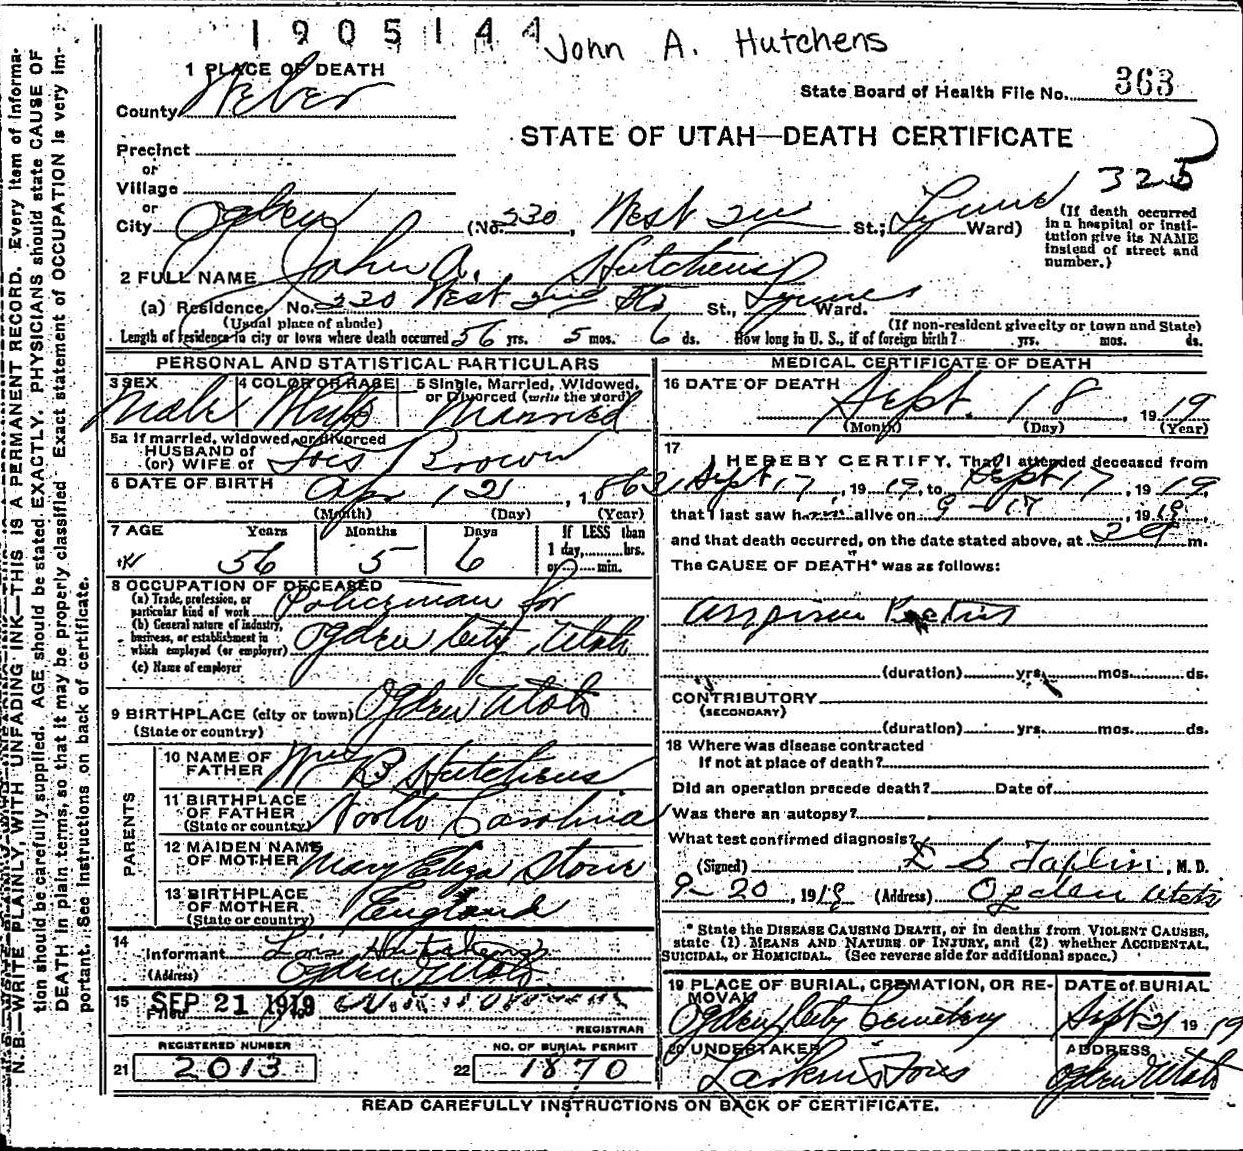 1905144
John A. Hutchens
1 PLACE OF DEATH
County Weber
State Board of Health File No. 363
STATE OF UTAH—DEATH CERTIFICATE
Precinct
or
Village
325
or
City Ogden (No. 230, West 2nd St.; Lynne Ward)
(If death occurred in a hospital or institution give its NAME instead of street and number.)
2 FULL NAME John A. Hutchens
(a) Residence, No. 230 West 2nd St., Lynne Ward.
(Usual place of abode)
(If non-resident give city or town and State)
Length of residence in city or town where death occurred 56 yrs. 5 mos. 6 ds. How long in U. S., if of foreign birth? yrs. mos. ds.
PERSONAL AND STATISTICAL PARTICULARS
3 SEX 4 COLOR OR RACE 5 Single, Married, Widowed, or Divorced (write the word)
Male White Married
5a If married, widowed, or divorced
HUSBAND of
(or) WIFE of Lois Brown
6 DATE OF BIRTH Apr 12, 1863
(Month) (Day) (Year)
7 AGE Years Months Days If LESS than
1 day, hrs.
56 5 6 or min.
8 OCCUPATION OF DECEASED
(a) Trade, profession, or particular kind of work Policeman for
(b) General nature of industry, business, or establishment in which employed (or employer) Ogden City, Utah
(c) Name of employer
9 BIRTHPLACE (city or town) Ogden Utah
(State or country)
PARENTS
10 NAME OF FATHER Wm B Hutchens
11 BIRTHPLACE OF FATHER North Carolina
(State or country)
12 MAIDEN NAME OF MOTHER Mary Eliza Stone
13 BIRTHPLACE OF MOTHER England
(State or country)
14
Informant Lois Hutchens
(Address) Ogden Utah
15 Filed SEP 21 1919
REGISTRAR
REGISTERED NUMBER
21 2013
NO. OF BURIAL PERMIT
22 1870
MEDICAL CERTIFICATE OF DEATH
16 DATE OF DEATH Sept. 18, 1919
(Month) (Day) (Year)
17
I HEREBY CERTIFY, That I attended deceased from
Sept 17, 1919, to Sept 17, 1919,
that I last saw him alive on 9-17, 1919,
and that death occurred, on the date stated above, at m.
The CAUSE OF DEATH* was as follows:
Angina Pectoris
(duration) yrs. mos. ds.
CONTRIBUTORY
(SECONDARY)
(duration) yrs. mos. ds.
18 Where was disease contracted
If not at place of death?
Did an operation precede death? Date of
Was there an autopsy?
What test confirmed diagnosis?
(Signed) E S Taplin, M. D.
9-20, 1919 (Address) Ogden Utah
* State the DISEASE CAUSING DEATH, or in deaths from VIOLENT CAUSES,
state (1) MEANS AND NATURE OF INJURY, and (2) whether ACCIDENTAL,
SUICIDAL, or HOMICIDAL. (See reverse side for additional space.)
19 PLACE OF BURIAL, CREMATION, OR REMOVAL DATE of BURIAL
Ogden City Cemetery Sept 21 1919
20 UNDERTAKER ADDRESS
Larkin & Sons Ogden Utah
READ CAREFULLY INSTRUCTIONS ON BACK OF CERTIFICATE.
N. B.—WRITE PLAINLY, WITH UNFADING INK—THIS IS A PERMANENT RECORD. Every item of informa-
tion should be carefully supplied. AGE should be stated EXACTLY. PHYSICIANS should state CAUSE OF
DEATH in plain terms, so that it may be properly classified. Exact statement of OCCUPATION is very im-
portant. See instructions on back of certificate.